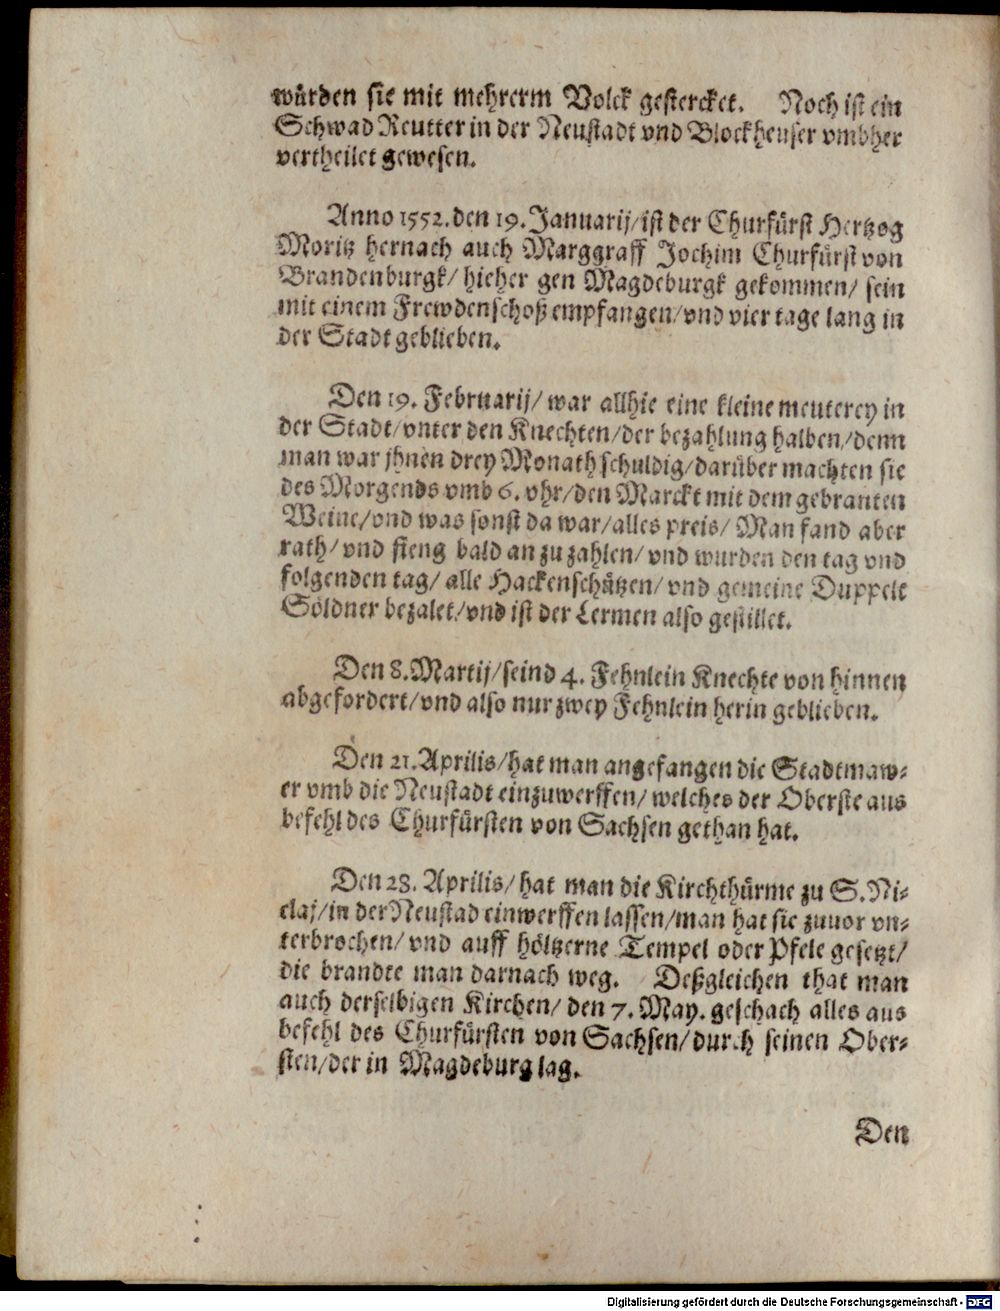 würden sie mit mehrerm Volck gestercket. Noch ist ein
Schwad Reutter in der Neustadt vnd Blockheuser vmbher
vertheilet gewesen.
Anno 1552. den 19. Januarij/ ist der Churfürst Hertzog
Moritz hernach auch Marggraff Jochim Churfürst von
Brandenburgk/ hieher gen Magdeburgk gekommen/ sein
mit einem Frewdenschoß empfangen/ vnd vier tage lang in
der Stadt geblieben.
Den 19. Februarij/ war allhie eine kleine meuterey in
der Stadt/ vnter den Knechten/ der bezahlung halben/ denn
man war jhnen drey Monath schuldig/ darüber machten sie
des Morgends vmb 6. vhr/ den Marckt mit dem gebranten
Weine/ vnd was sonst da war/ alles preis/ Man fand aber
rath/ vnd fieng bald an zu zahlen/ vnd wurden den tag vnd
folgenden tag/ alle Hackenschützen/ vnd gemeine Duppelt
Söldner bezalet/ vnd ist der Lermen also gestillet.
Den 8. Martij/ seind 4. Fehnlein Knechte von hinnen
abgefordert/ vnd also nur zwey Fehnlein herin geblieben.
Den 21. Aprilis/ hat man angefangen die Stadtmaw-
er vmb die Neustadt einzuwerffen/ welches der Oberste aus
befehl des Churfürsten von Sachsen gethan hat.
Den 28. Aprilis/ hat man die Kirchthürme zu S. Ni-
claj/ in der Neustad einwerffen lassen/ man hat sie zuuor vn-
terbrochen/ vnd auff höltzerne Tempel oder Pfele gesetzt/
die brandte man darnach weg. Deßgleichen that man
auch derselbigen Kirchen/ den 7. May. geschach alles aus
befehl des Churfürsten von Sachsen/ durch seinen Ober-
sten/ der in Magdeburg lag.
Den
Digitalisierung gefördert durch die Deutsche Forschungsgemeinschaft - DFG